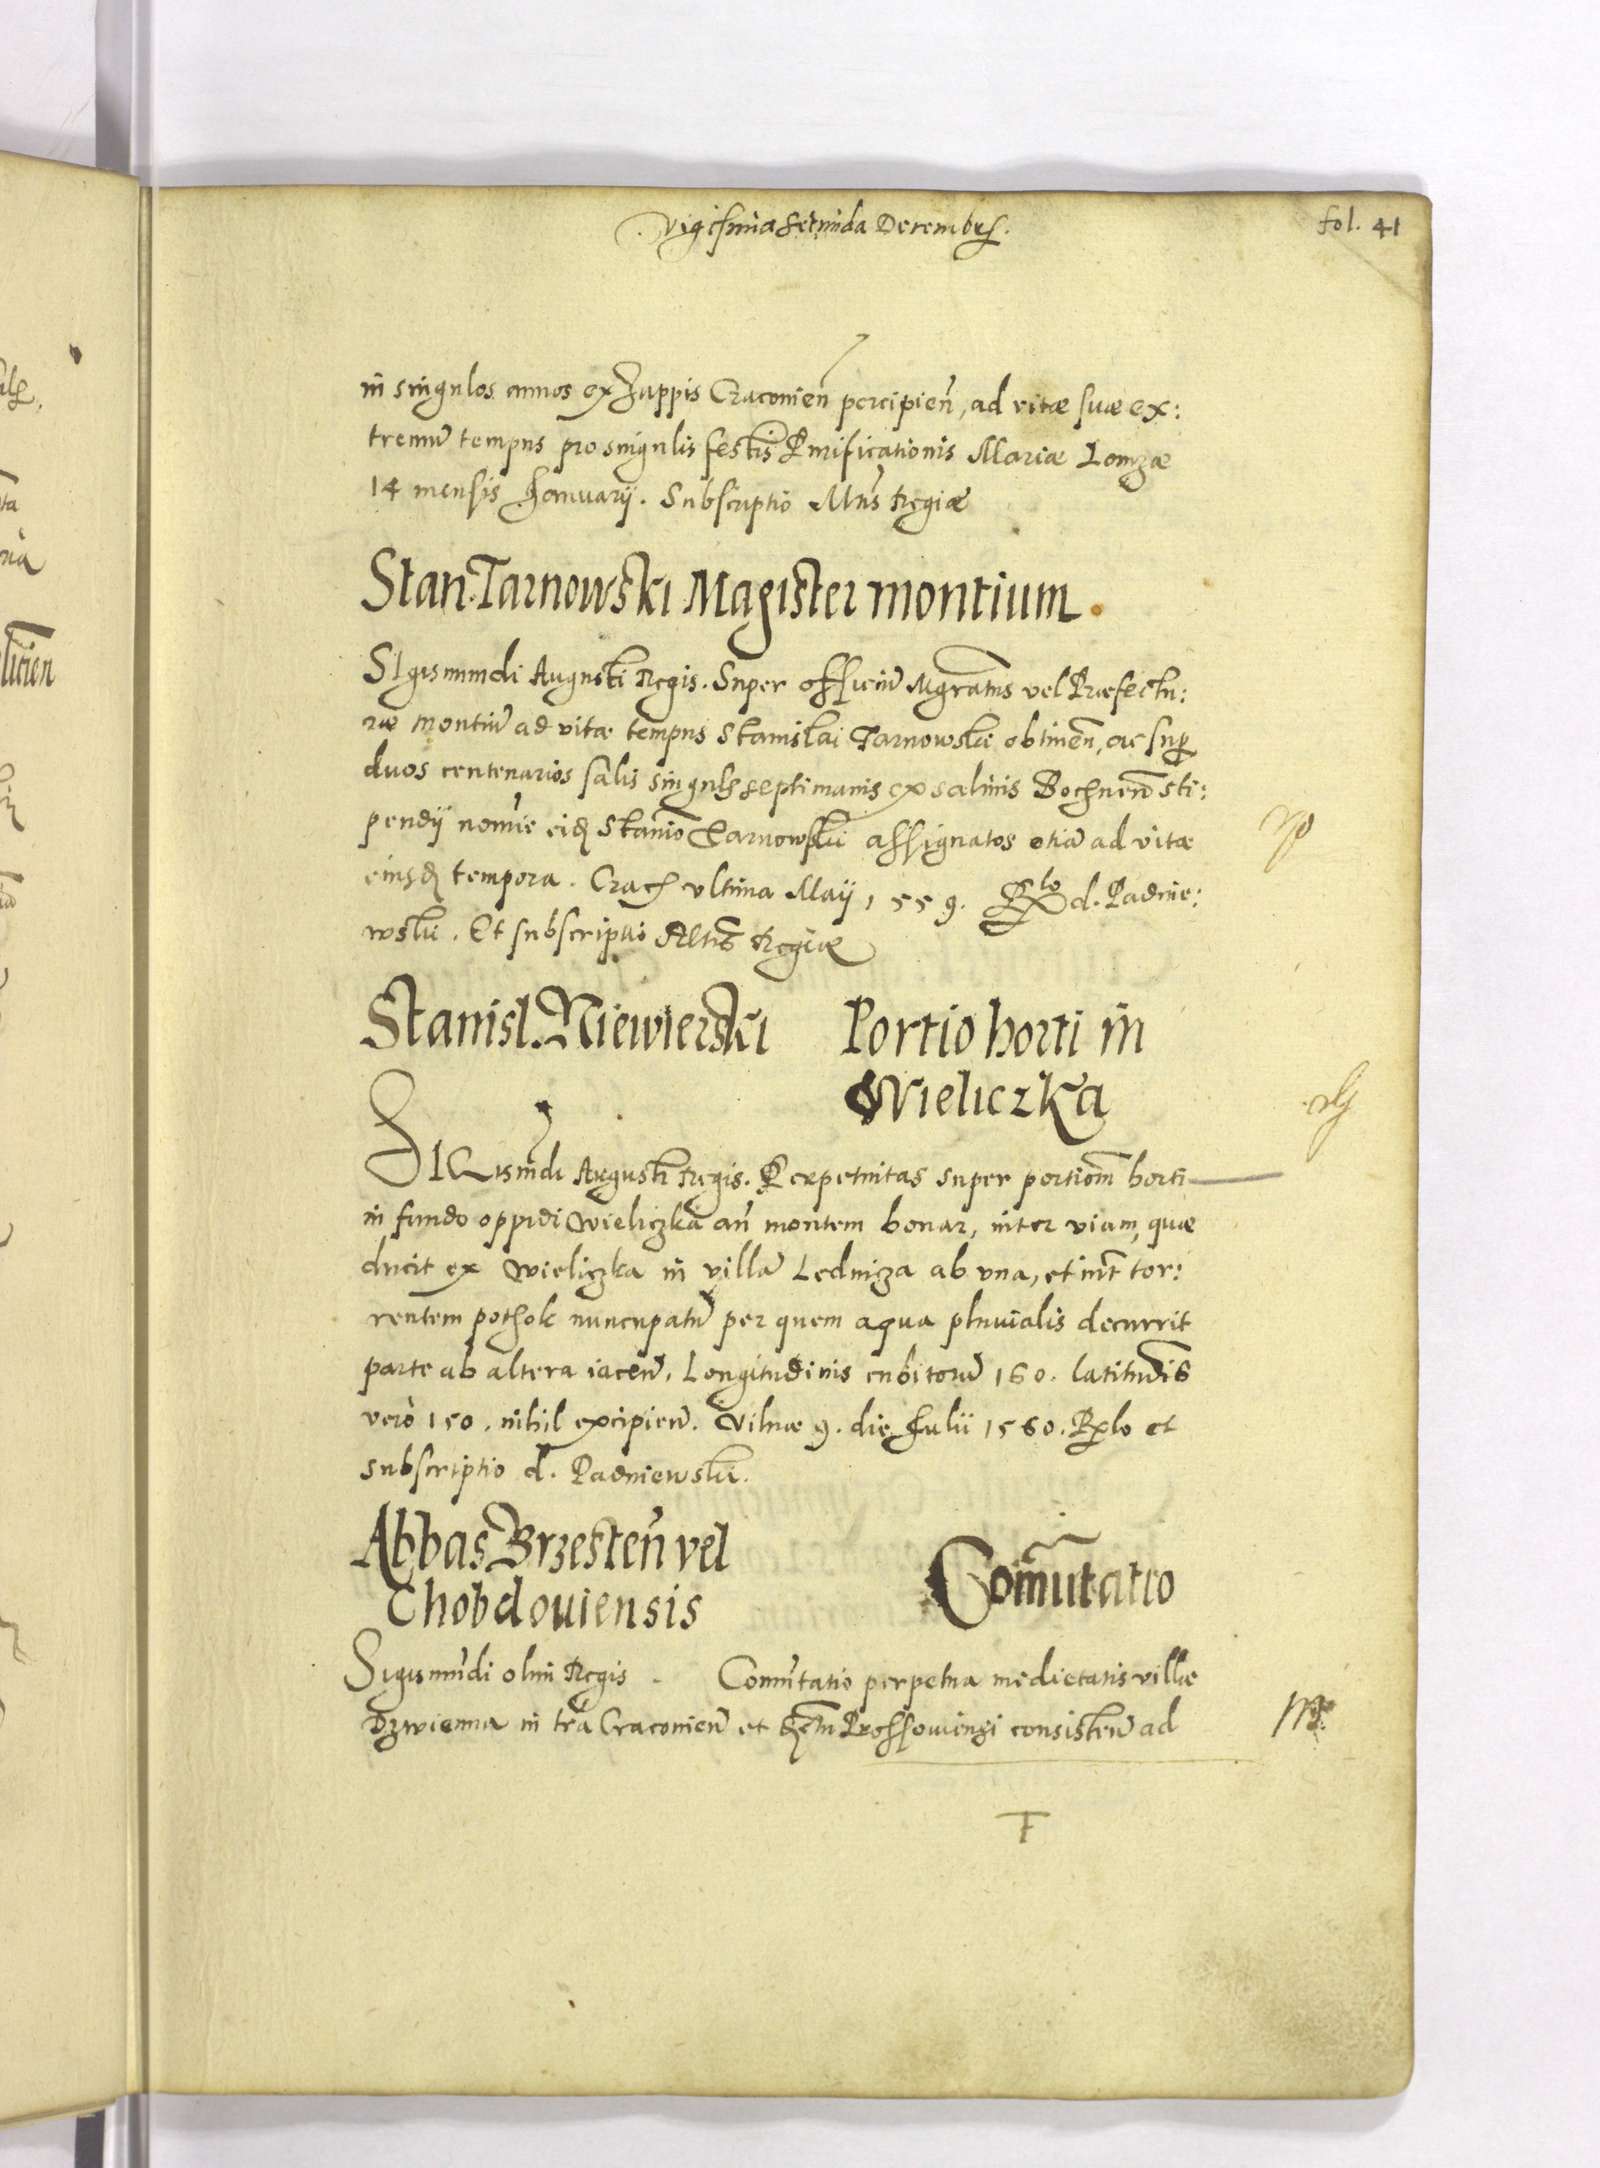 Vigesima Secunda Decembris.
fol. 41
in singulos annos ex Zuppis Cracovien percipien, ad vitæ suæ ex:
tremu tempus pro singulis festis Purificationis Mariæ Lomzæ
14 mensis Januarij. Subscriptio Mtis Regiæ
Stan. Tarnowski Magister montium.
SIgismundi Augusti Regis. Super officiu Mgratus vel Præfectu:
ræ montiu ad vitæ tempus Stanislai Tarnowskii obtinen, ac sup
duos centenarios salis singulis septimanis ex salinis Bochnen sti:
pendij nomie eid Stanio Tarnowskii assignatos etia ad vitæ
eiusd tempora. Crac ultima Maij 1559. Rlo d. Padnie:
wskii. Et subscriptio Mtis Regiæ
Stanisl. Niewierski Portio horti in
Wieliczka
SIGismdi Augusti Regis. Perpetuitas super portiom horti
in fundo oppidi Wieliczka an montem bonar, inter viam, quæ
ducit ex Wieliczka in villa Ledniza ab una, et int tor:
rentem pothok nuncupatu per quem aqua pluvialis decurrit
parte ab altera iacen. Longitudinis cubitoru 160. latitudis
verò 150. nihil excipien. Vilnæ 9. die Julii 1560. Rlo et
subscriptio d. Padniewskii.
Abbas Brzesten vel
Chobdouiensis
Comutatio
Sigismudi olim Regis. Comutatio perpetua medietatis villæ
Dzwienna in tra Cracovien et Prossouiensi consisten ad
F